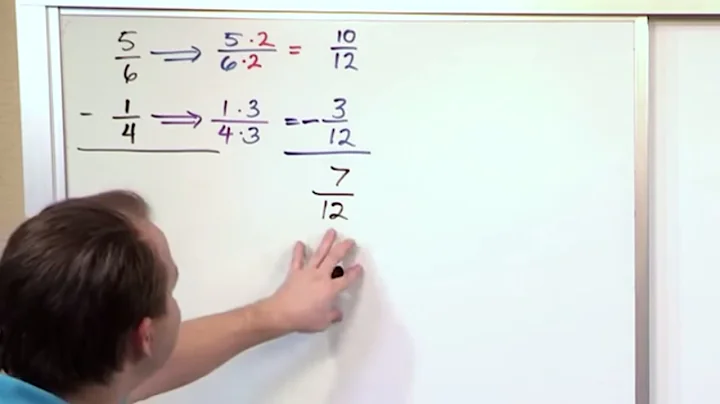 5/6 ⟹ 5·2/6·2 = 10/12
- 1/4 ⟹ 1·3/4·3 = - 3/12
7/12